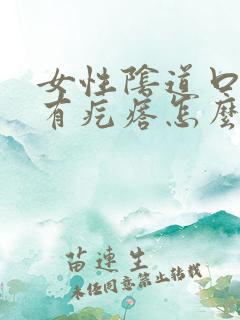 女性陰道口
有疙瘩怎麼
苗連生
未经同意禁止转载